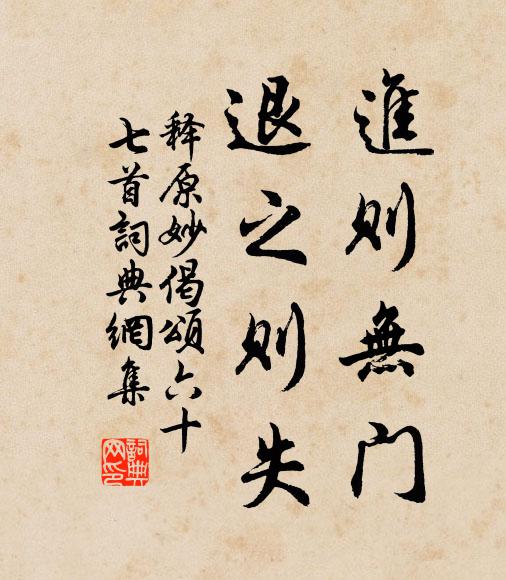 進則無門
退之則失
释原妙偈頌六十
七首詞典網集
詞典
网印